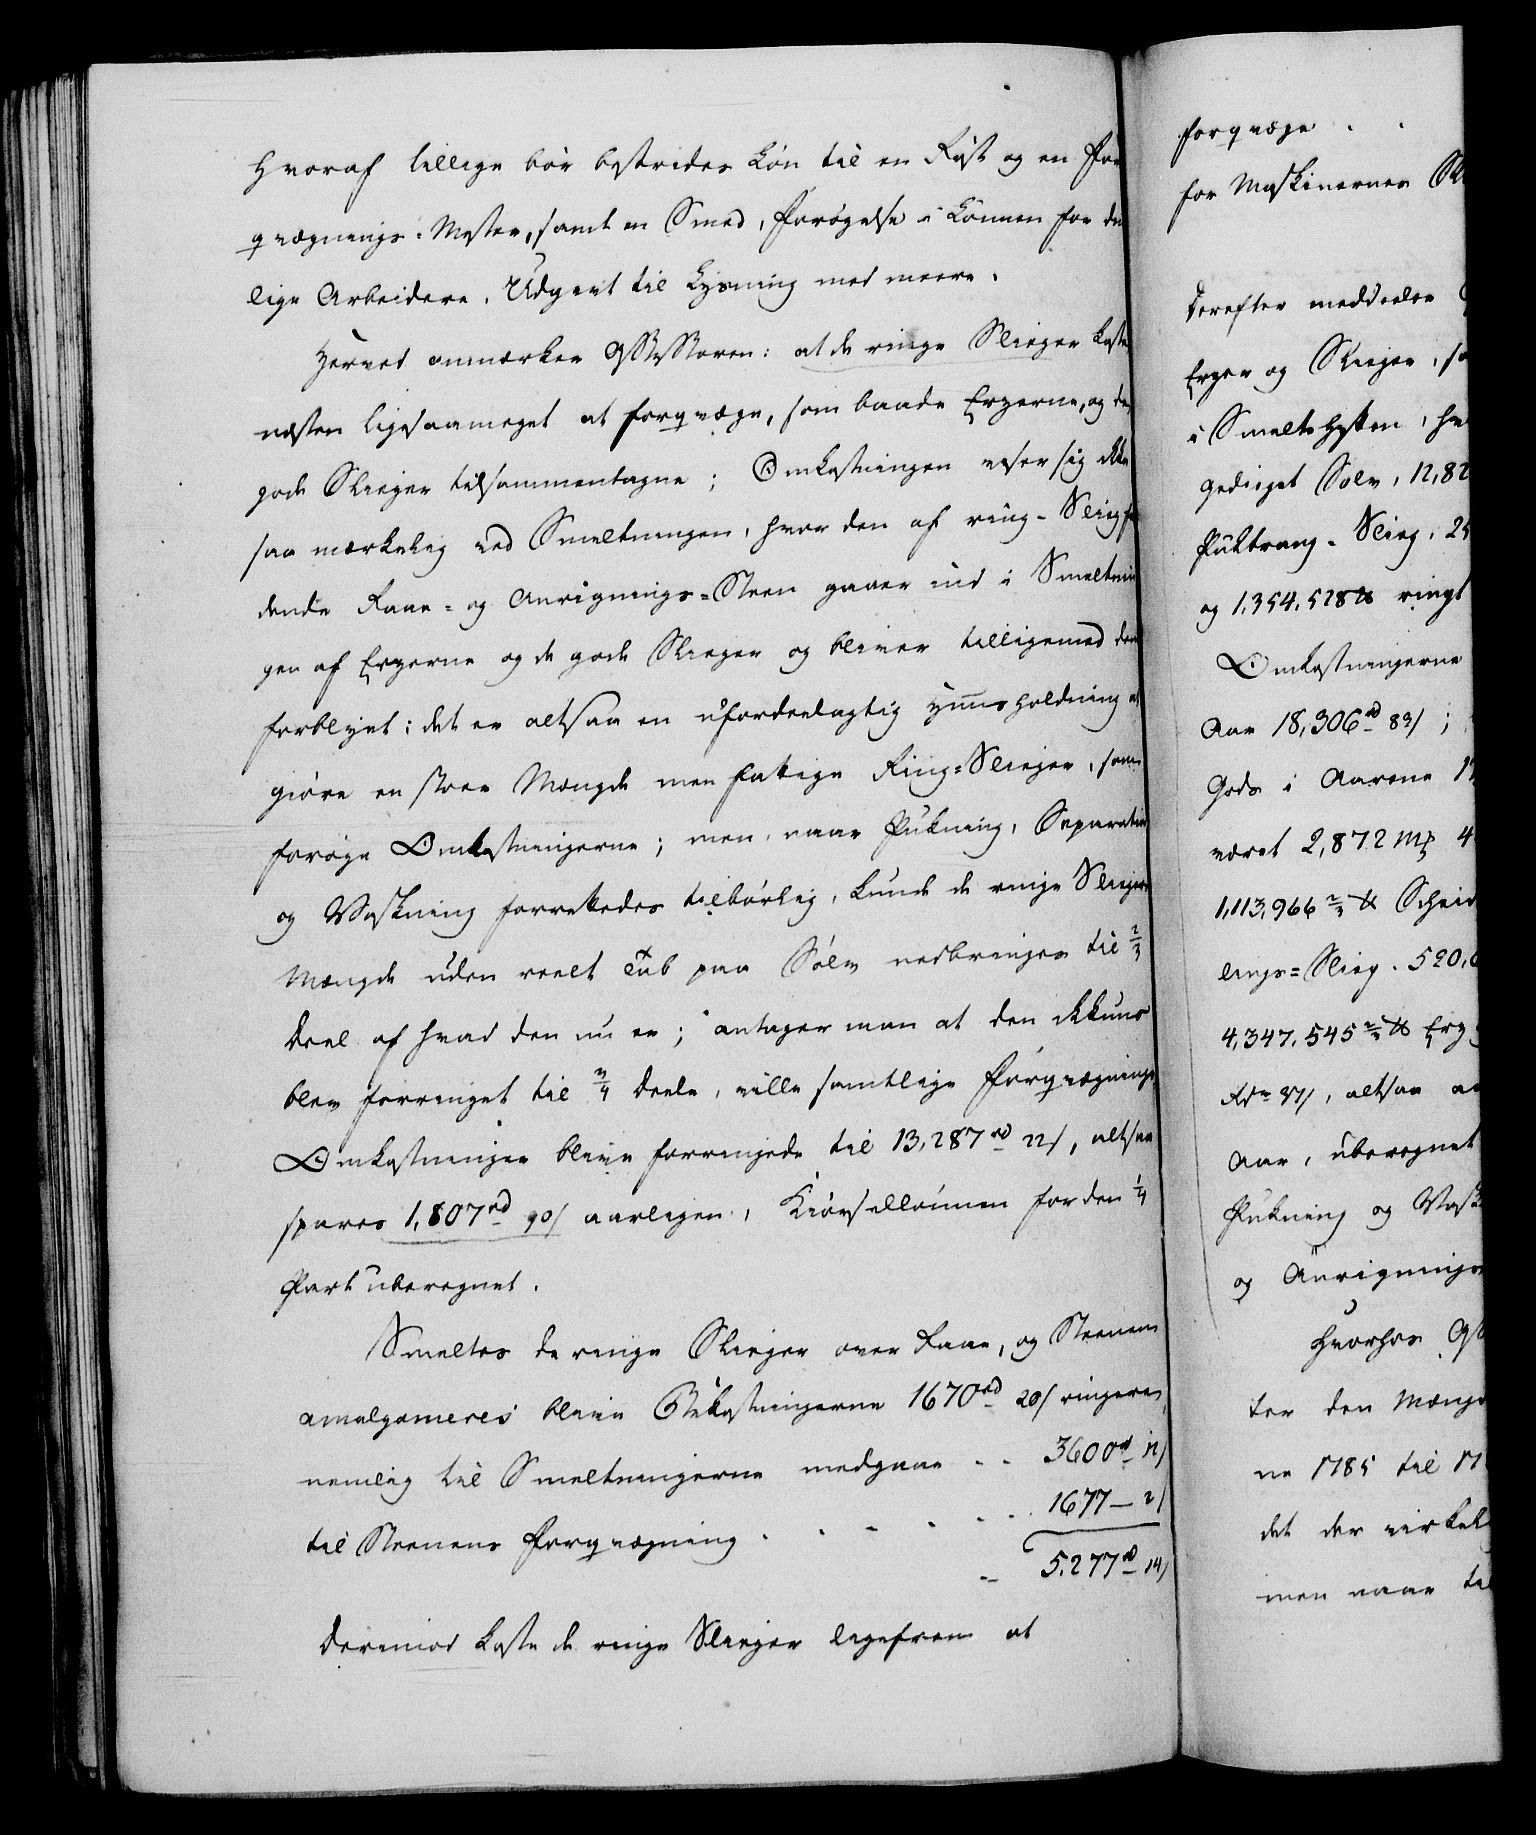 hvoraf tillige bør bestrides Løn til en Røst og en For
qvægnings-Mester, samt en Smed, Forøgelse i Lønnen for de
lige Arbeidere, Udgivt til Lysning med meere.
Herved anmærker Assessoren: at de ringe Slieger koste
næsten ligesaameget at forqvæge, som baade Erzerne, og de
gode Slieger tilsammentagne; Omkostningen viser sig ikke
saa mærkelig ved Smeltningen, hvor den af ring-Slieg fal
dende Raae- og Anrignings-Steen gaaer ind i Smeltnin
gen af Erzerne og de gode Slieger og bliver tilligemed dem
forblyet; det er altsaa en ufordeelagtig Huusholdning at
giøre en stoer Mængde men fattige Ring-Slieger, som
forøge Omkostningerne; men, naar Pukning, Separation
og Vaskning forrettedes tilbørlig, kunde de ringe Sliegers
Mængde uden reelt Tab paa Sølv nedbringes til 2/3
Deel af hvad den nu er; antager man at den ikkuns
blev forringet til 3/4 Deele, ville samtlige Forqvægnings
Omkostninger blive forringede til 13,287 rd 22 s, altsaa
spares 1,807 rd 90 s aarligen, Kiørsellønnen for den 1/4
Part uberegnet.
Smeltes de ringe Slieger over Raae, og Steenen
amalgameres blive Bekostningerne 1670 rd 20 s ringere,
nemlig til Smeltningerne medgaae - - 3600 rd 12 s
til Steenens Forqvægning - - - - - 1677 - 2 s
- 5,277 rd 14 s
Derimod koste de ringe Slieger ligefrem at
forqvæge . .
for Maskinernes
Derefter meddeeler
Erzer og Slieger, so
i Smeltehytten, hv
gediget Sølv, 12,82
Puktrang-Slieg, 25
og 1,354,528 ℔ ringt
Omkostningerne
Aar 18,306 rd 83 s;
Gods i Aarene 17
været 2,872 Mk 4
1,113,966 2/3 ℔ Scheid
lings-Slieg. 520,0
4,347,545 2/3 ℔ Erz
Rdr 37 s, altsaa
Aar, uberegnet
Pukning og Vask
og Anrignings
hvorhos
ter den Mængde
ne 1785 til 17
det der virkelig
men naar